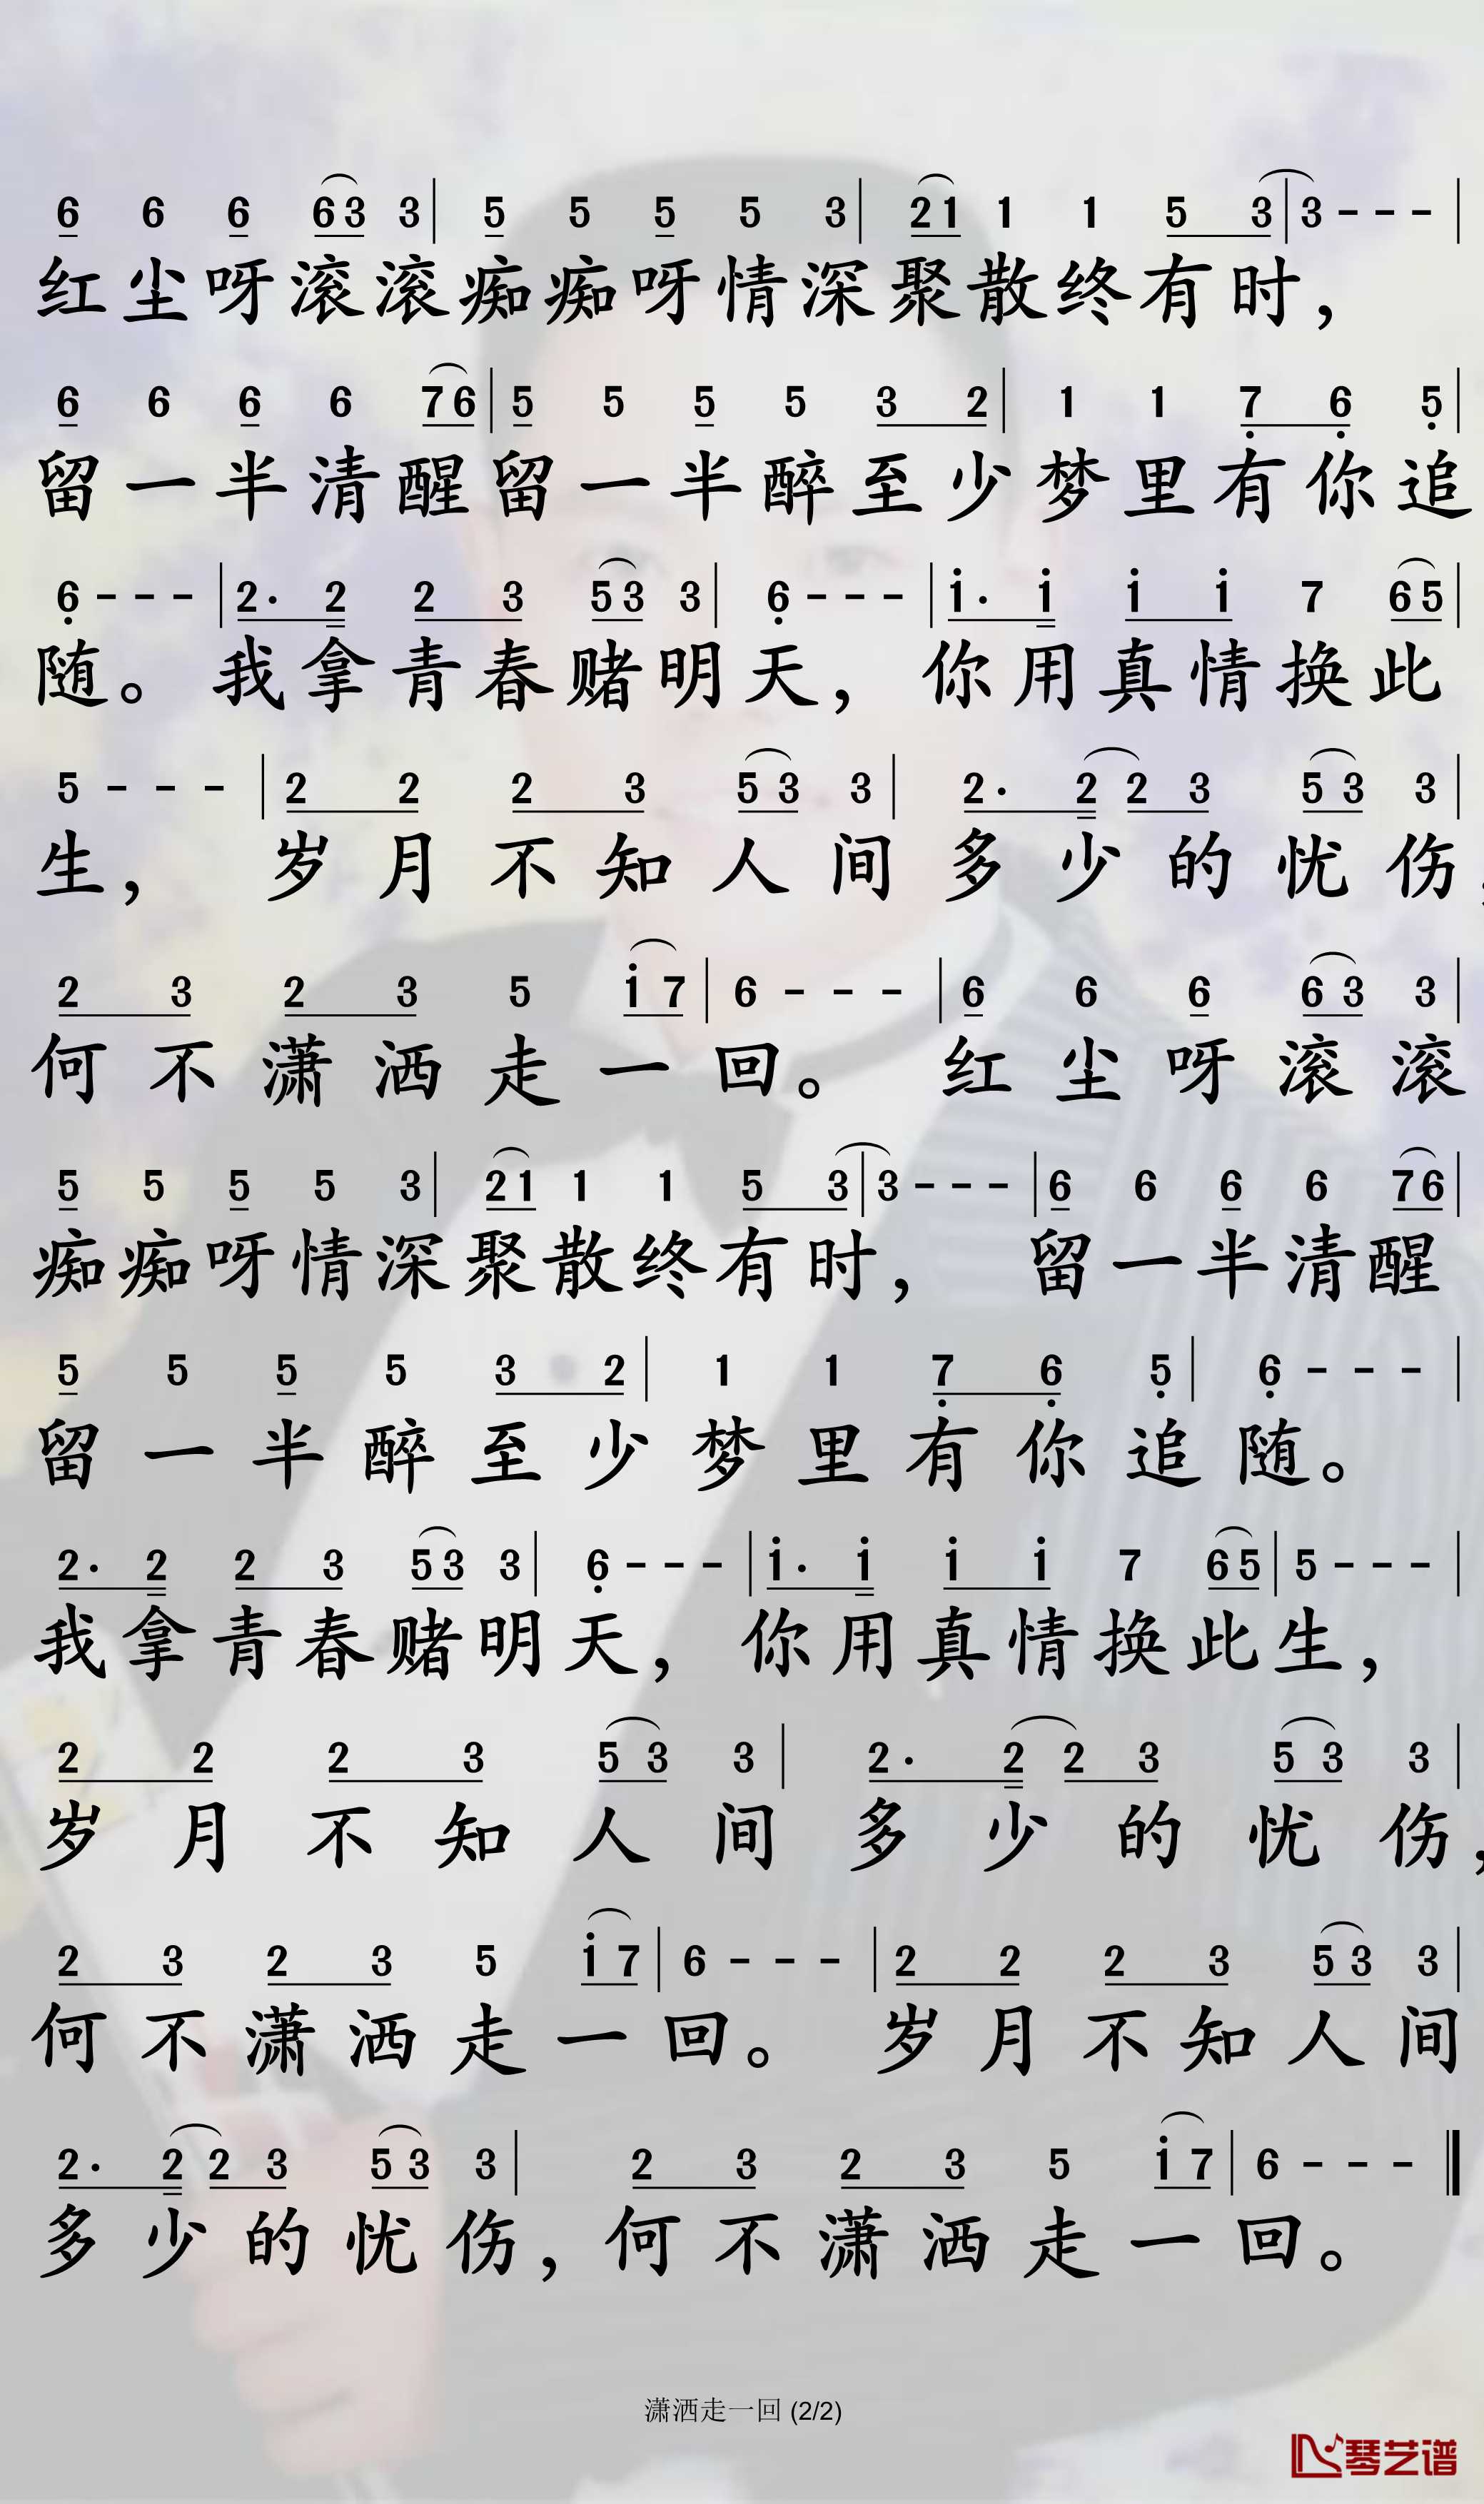 6 6 6 6 3 3 | 5 5 5 5 3 | 2 1 1 1 5 3 | 3 - - - |
红尘呀滚滚痴痴呀情深聚散终有时，
6 6 6 6 7 6 | 5 5 5 5 3 2 | 1 1 7̣ 6̣ 5̣ |
留一半清醒留一半醉至少梦里有你追
6̣ - - - | 2· 2 2 3 5 3 3 | 6̣ - - - | i· i i i 7 6 5 |
随。我拿青春赌明天，你用真情换此
5 - - - | 2 2 2 3 5 3 3 | 2· 2 2 3 5 3 3 |
生，岁月不知人间多少的忧伤，
2 3 2 3 5 i 7 | 6 - - - | 6 6 6 6 3 3 |
何不潇洒走一回。红尘呀滚滚
5 5 5 5 3 | 2 1 1 1 5 3 | 3 - - - | 6 6 6 6 7 6 |
痴痴呀情深聚散终有时，留一半清醒
5 5 5 5 3 2 | 1 1 7̣ 6̣ 5̣ | 6̣ - - - |
留一半醉至少梦里有你追随。
2· 2 2 3 5 3 3 | 6̣ - - - | i· i i i 7 6 5 | 5 - - - |
我拿青春赌明天，你用真情换此生，
2 2 2 3 5 3 3 | 2· 2 2 3 5 3 3 |
岁月不知人间多少的忧伤，
2 3 2 3 5 i 7 | 6 - - - | 2 2 2 3 5 3 3 |
何不潇洒走一回。岁月不知人间
2· 2 2 3 5 3 3 | 2 3 2 3 5 i 7 | 6 - - - ‖
多少的忧伤，何不潇洒走一回。
潇洒走一回 (2/2)
琴艺谱